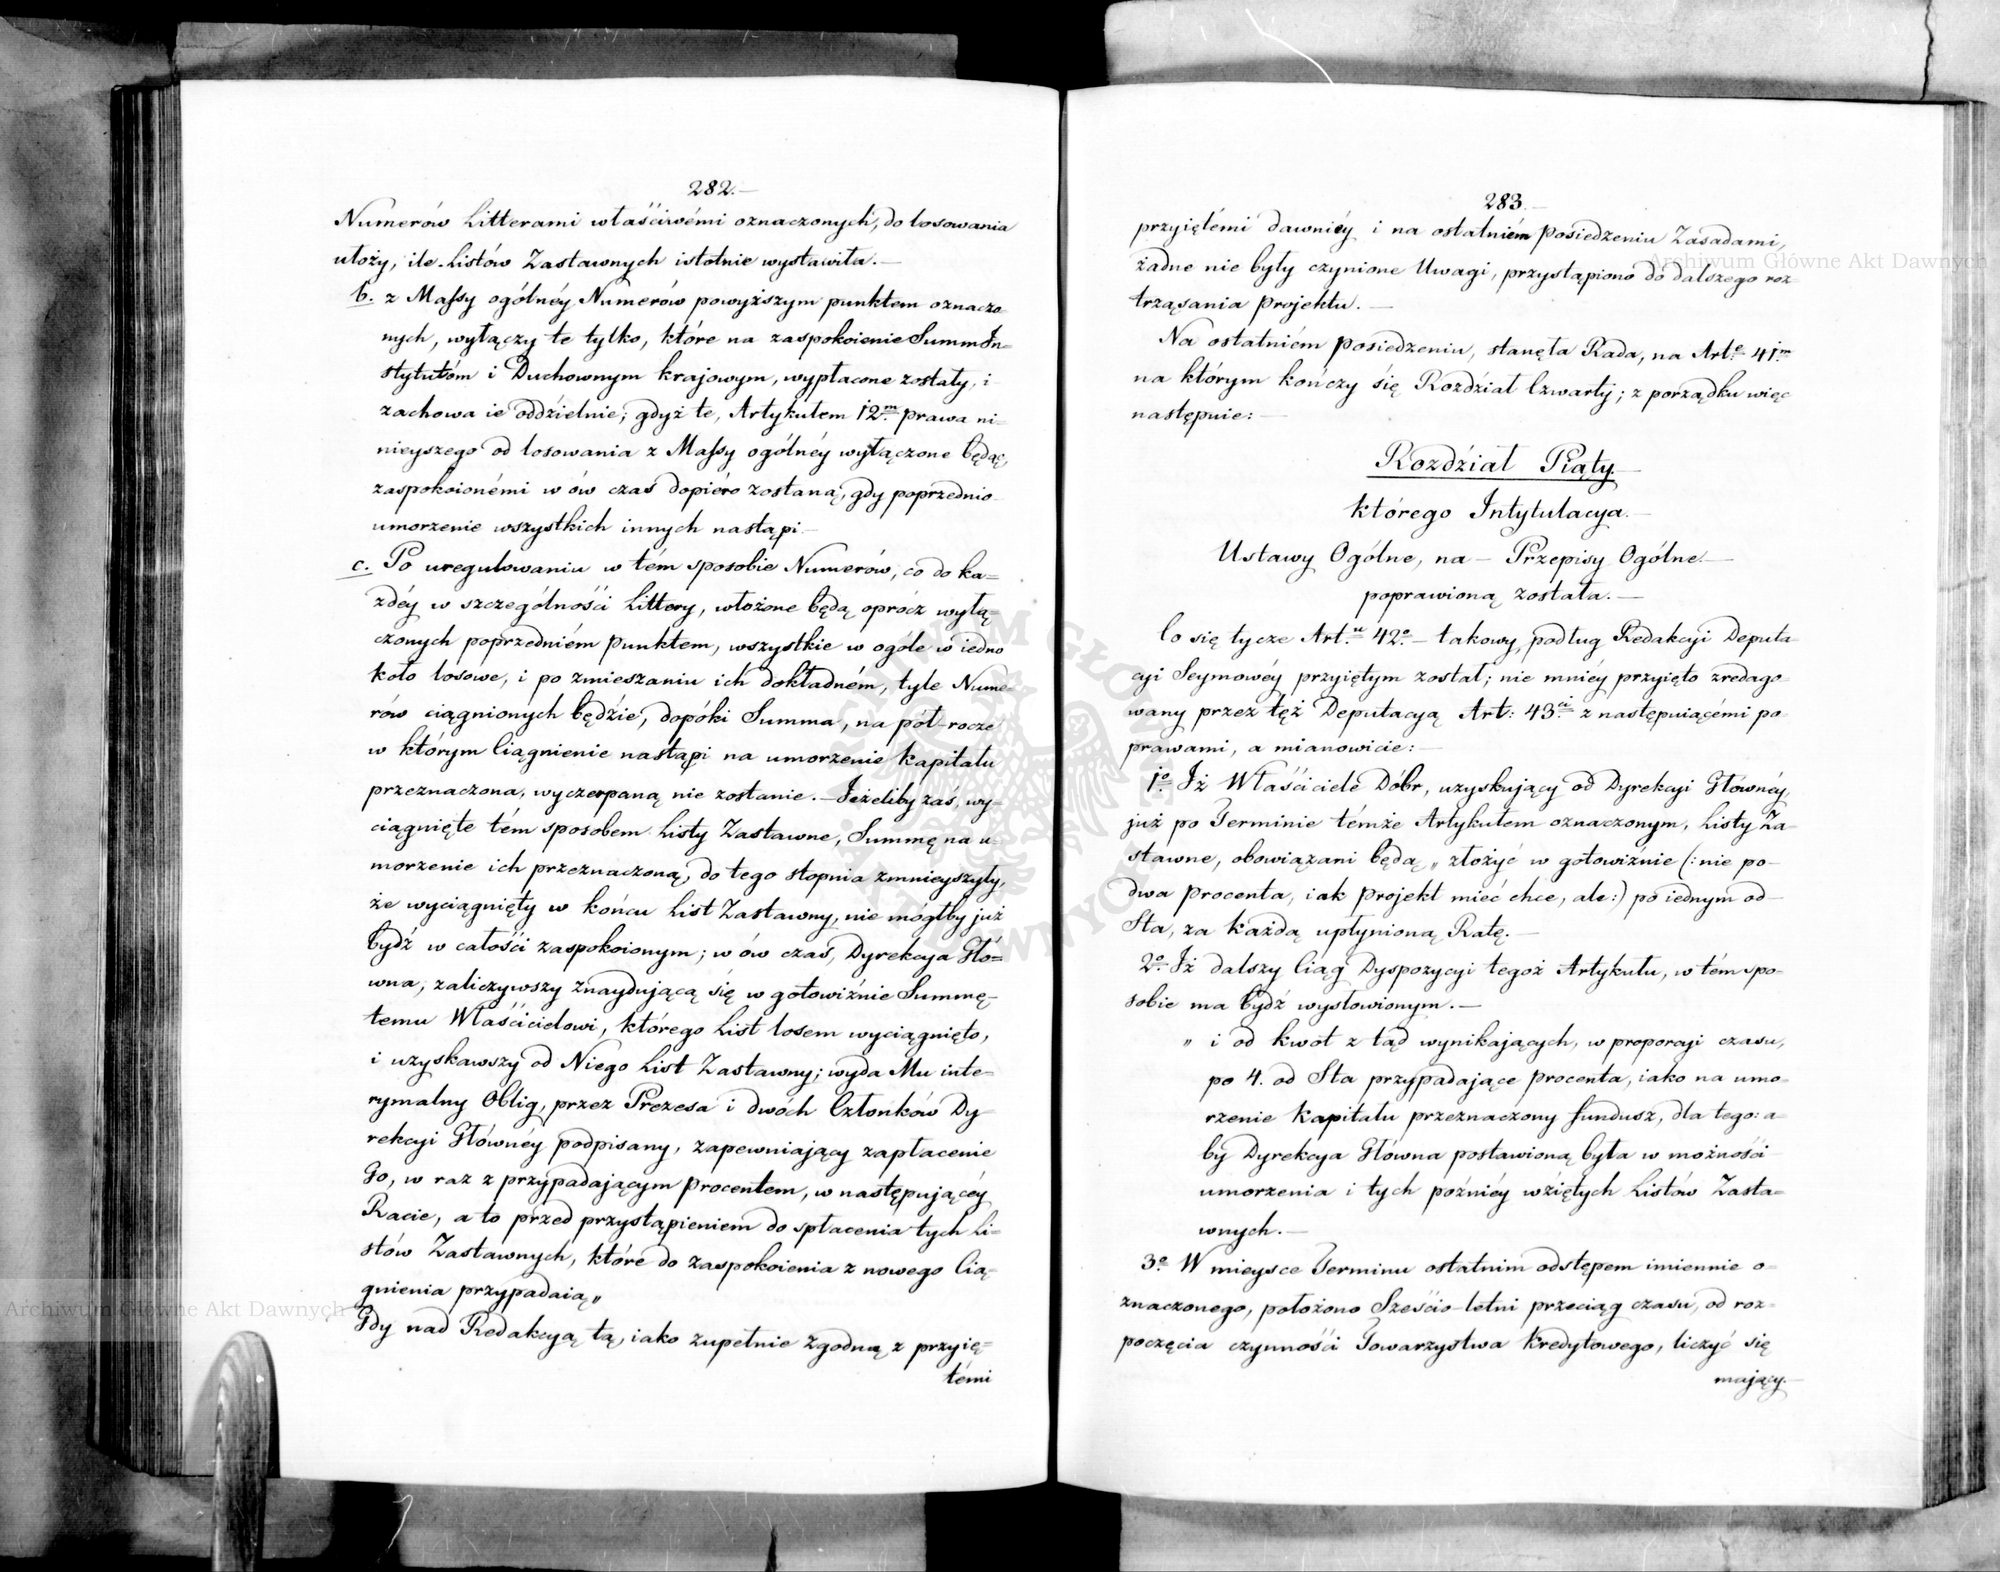 282.—
Numerów Litterami właściwémi oznaczonych, do losowania
ułoży, ile Listów Zastawnych istotnie wystawiła.—
b. z Massy ogólnéy Numerów powyższym punktem oznaczo-
nych, wyłączy te tylko, które na zaspokoienie Summ In=
stytutóm i Duchownym krajowym, wypłacone zostały, i
zachowa ie oddzielnie; gdyż te, Artykułem 12.m prawa ni-
nieyszego od losowania z Massy ogólnéy wyłączone będąc,
zaspokoionémi w ów czas dopiéro zostaną, gdy poprzednio
umorzenie wszystkich innych nastąpi—
c. Po uregulowaniu w tém sposobie Numerów, co do ka=
żdéy w szczególności Littery, włożone będą oprócz wyłą=
czonych poprzedniém punktem, wszystkie w ogóle w iedno
koło losowe, i po zmieszaniu ich dokładném, tyle Nume-
rów ciągnionych będzie, dopóki Summa, na pół-rocze
w którym Ciągnienie nastąpi na umorzenie kapitału
przeznaczona, wyczerpaną nie zostanie.—Jeżeliby zaś, wy-
ciągnięte tém sposobem Listy Zastawne, Summę na u-
morzenie ich przeznaczoną, do tego stopnia zmnieyszyły,
że wyciągnięty w końcu List Zastawny, nie mógłby już
bydź w całości zaspokoionym; w ów czas, Dyrekcya Głó=
wna, zaliczywszy znaydującą się w gotowiźnie Summę-
temu Właścicielowi, którego List losem wyciągnięto,
i uzyskawszy od Niego List Zastawny; wyda Mu inte-
rymalny Oblig, przez Prezesa i dwóch Członków Dy-
rekcyi Głównéy podpisany, zapewniający zapłacenie
Go, w raz z przypadającym procentem, w następującéy
Racie, a to przed przystąpieniem do spłacenia tych Li-
stów Zastawnych, które do zaspokoienia z nowego Cią-
gnienia przypadaią„
Gdy nad Redakcyą tą, iako zupełnie zgodną z przyię=
témi
283.—
przyiętémi dawniéy i na ostatniém Posiedzeniu Zasadami,
żadne nie były czynione Uwagi, przystąpiono do dalszego roz-
trząsania Projektu.—
Na ostatniém Posiedzeniu, stanęła Rada, na Art.e 41.m
na którym kończy się Rozdział Czwarty; z porządku więc
następuie:—
Rozdział Piąty.—
którego Intytulacya.—
Ustawy Ogólne, na — Przepisy Ogólne—
poprawioną została.—
Co się tycze Art.u 42.o — takowy, podług Redakcyi Deputa-
cyi Seymowéy przyiętym został; nie mniéy przyięto zredago-
wany przez tęż Deputacyą Art: 43.ci z następuiącémi po-
prawami, a mianowicie:—
1.o Iż Właściciele Dóbr, uzyskujący od Dyrekcyi Głównéy,
już po Terminie témże Artykułem oznaczonym, Listy Za-
stawne, obowiązani będą „ złożyć w gotowiźnie (: nie po-
dwa procenta, iak Projekt mieć chce, ale :) po iednym od-
Sta, za każdą upłynioną Ratę.—
2.o Iż dalszy Ciąg Dyspozycyi tegoż Artykułu, w tém spo-
sobie ma bydź wysłowionym.—
„ i od kwot z tąd wynikających, w proporcyi czasu,
po 4. od Sta przypadające procenta, iako na umo-
rzenie kapitału przeznaczony fundusz, dla tego: a-
by Dyrekcya Główna postawioną była w możności
umorzenia i tych poźniéy wziętych Listów Zasta=
wnych.—
3.o W mieysce Terminu ostatnim odstępem imiennie o-
znaczonego, położono Sześcio-letni przeciąg czasu, od roz=
poczęcia czynności Towarzystwa kredytowego, liczyć się
mający.—
Archiwum Główne Akt Dawnych
Archiwum Główne Akt Dawnych